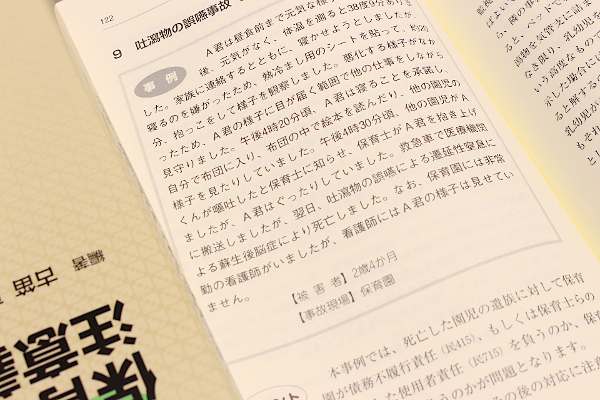 122
9 吐瀉物の誤嚥事故
事例
A君は昼食前まで元気な様
後、元気がなく、体温を測ると38度9分あり
した。家族に連絡するとともに、寝かせようとしましたが、
寝るのを嫌がったため、熱冷まし用のシートを貼って、約20
分、抱っこをして様子を観察しました。悪化する様子がなか
ったため、A君の様子に目が届く範囲で他の仕事をしながら
見守りました。午後4時20分頃、A君は寝ることを承諾し、
自分で布団に入り、布団の中で絵本を読んだり、他の園児の
様子を見たりしていました。午後4時30分頃、他の園児がA
くんが嘔吐したと保育士に知らせ、保育士がA君を抱き上げ
ましたが、A君はぐったりしていました。救急車で医療機関
に搬送しましたが、翌日、吐瀉物の誤嚥による遷延性窒息に
よる蘇生後脳症により死亡しました。なお、保育園には非常
勤の看護師がいましたが、看護師にはA君の様子は見せてい
ません。
【被害者】2歳4か月
【事故現場】保育園
本事例では、死亡した園児の遺族に対して保育
園が債務不履行責任（民415）、もしくは保育士らの
した使用者責任（民715）を負うのか、保育
うのかが問題となります。
その後の対応に注意
編著 古笛
保育
注意義